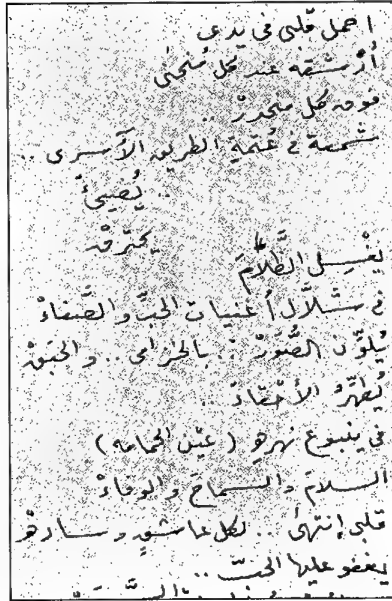 احمل قلبي في يدي
أرشقه عند كل مُنحنى
فوق كل منحدرْ ..
شمعة في عُتمةِ الطريق الآسرى ..
.. يُضيئُ
يحترقْ
يغْسِل الظَّلَامَ
في شلَّال أغنيات الحبِّ والصَّفاءْ
يلوِّن الصُّوَرْ .. بالخزامى .. والحبقْ
يُطهِّرُ الأحْقادَ ..
في ينبوع نهرهِ (عيْن الحمامه)
السلامَ والسماحَ والوفاءْ
قلبي إنتهى .. لكل عاشقٍ وسادهْ
يغفو عليها الحبّ ..